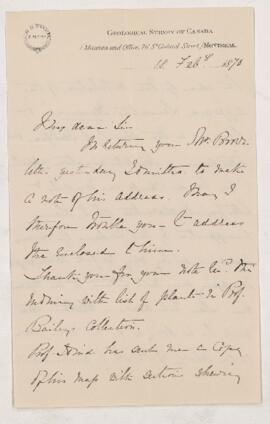 GEOLOGICAL SURVEY OF CANADA
(Museum and Office, 76 St Gabriel Street) MONTREAL
18 Feb 1873
My dear Sir
In returning you Mr. Brown
letter yesterday I omitted to make
a note of his address. May I
therefore trouble you to address
the enclosed to him.
Thank you for your note this
morning with list of plants in Prof.
Bailey's Collection.
Prof. Hind has sent me a Copy
of his map with sections shewing